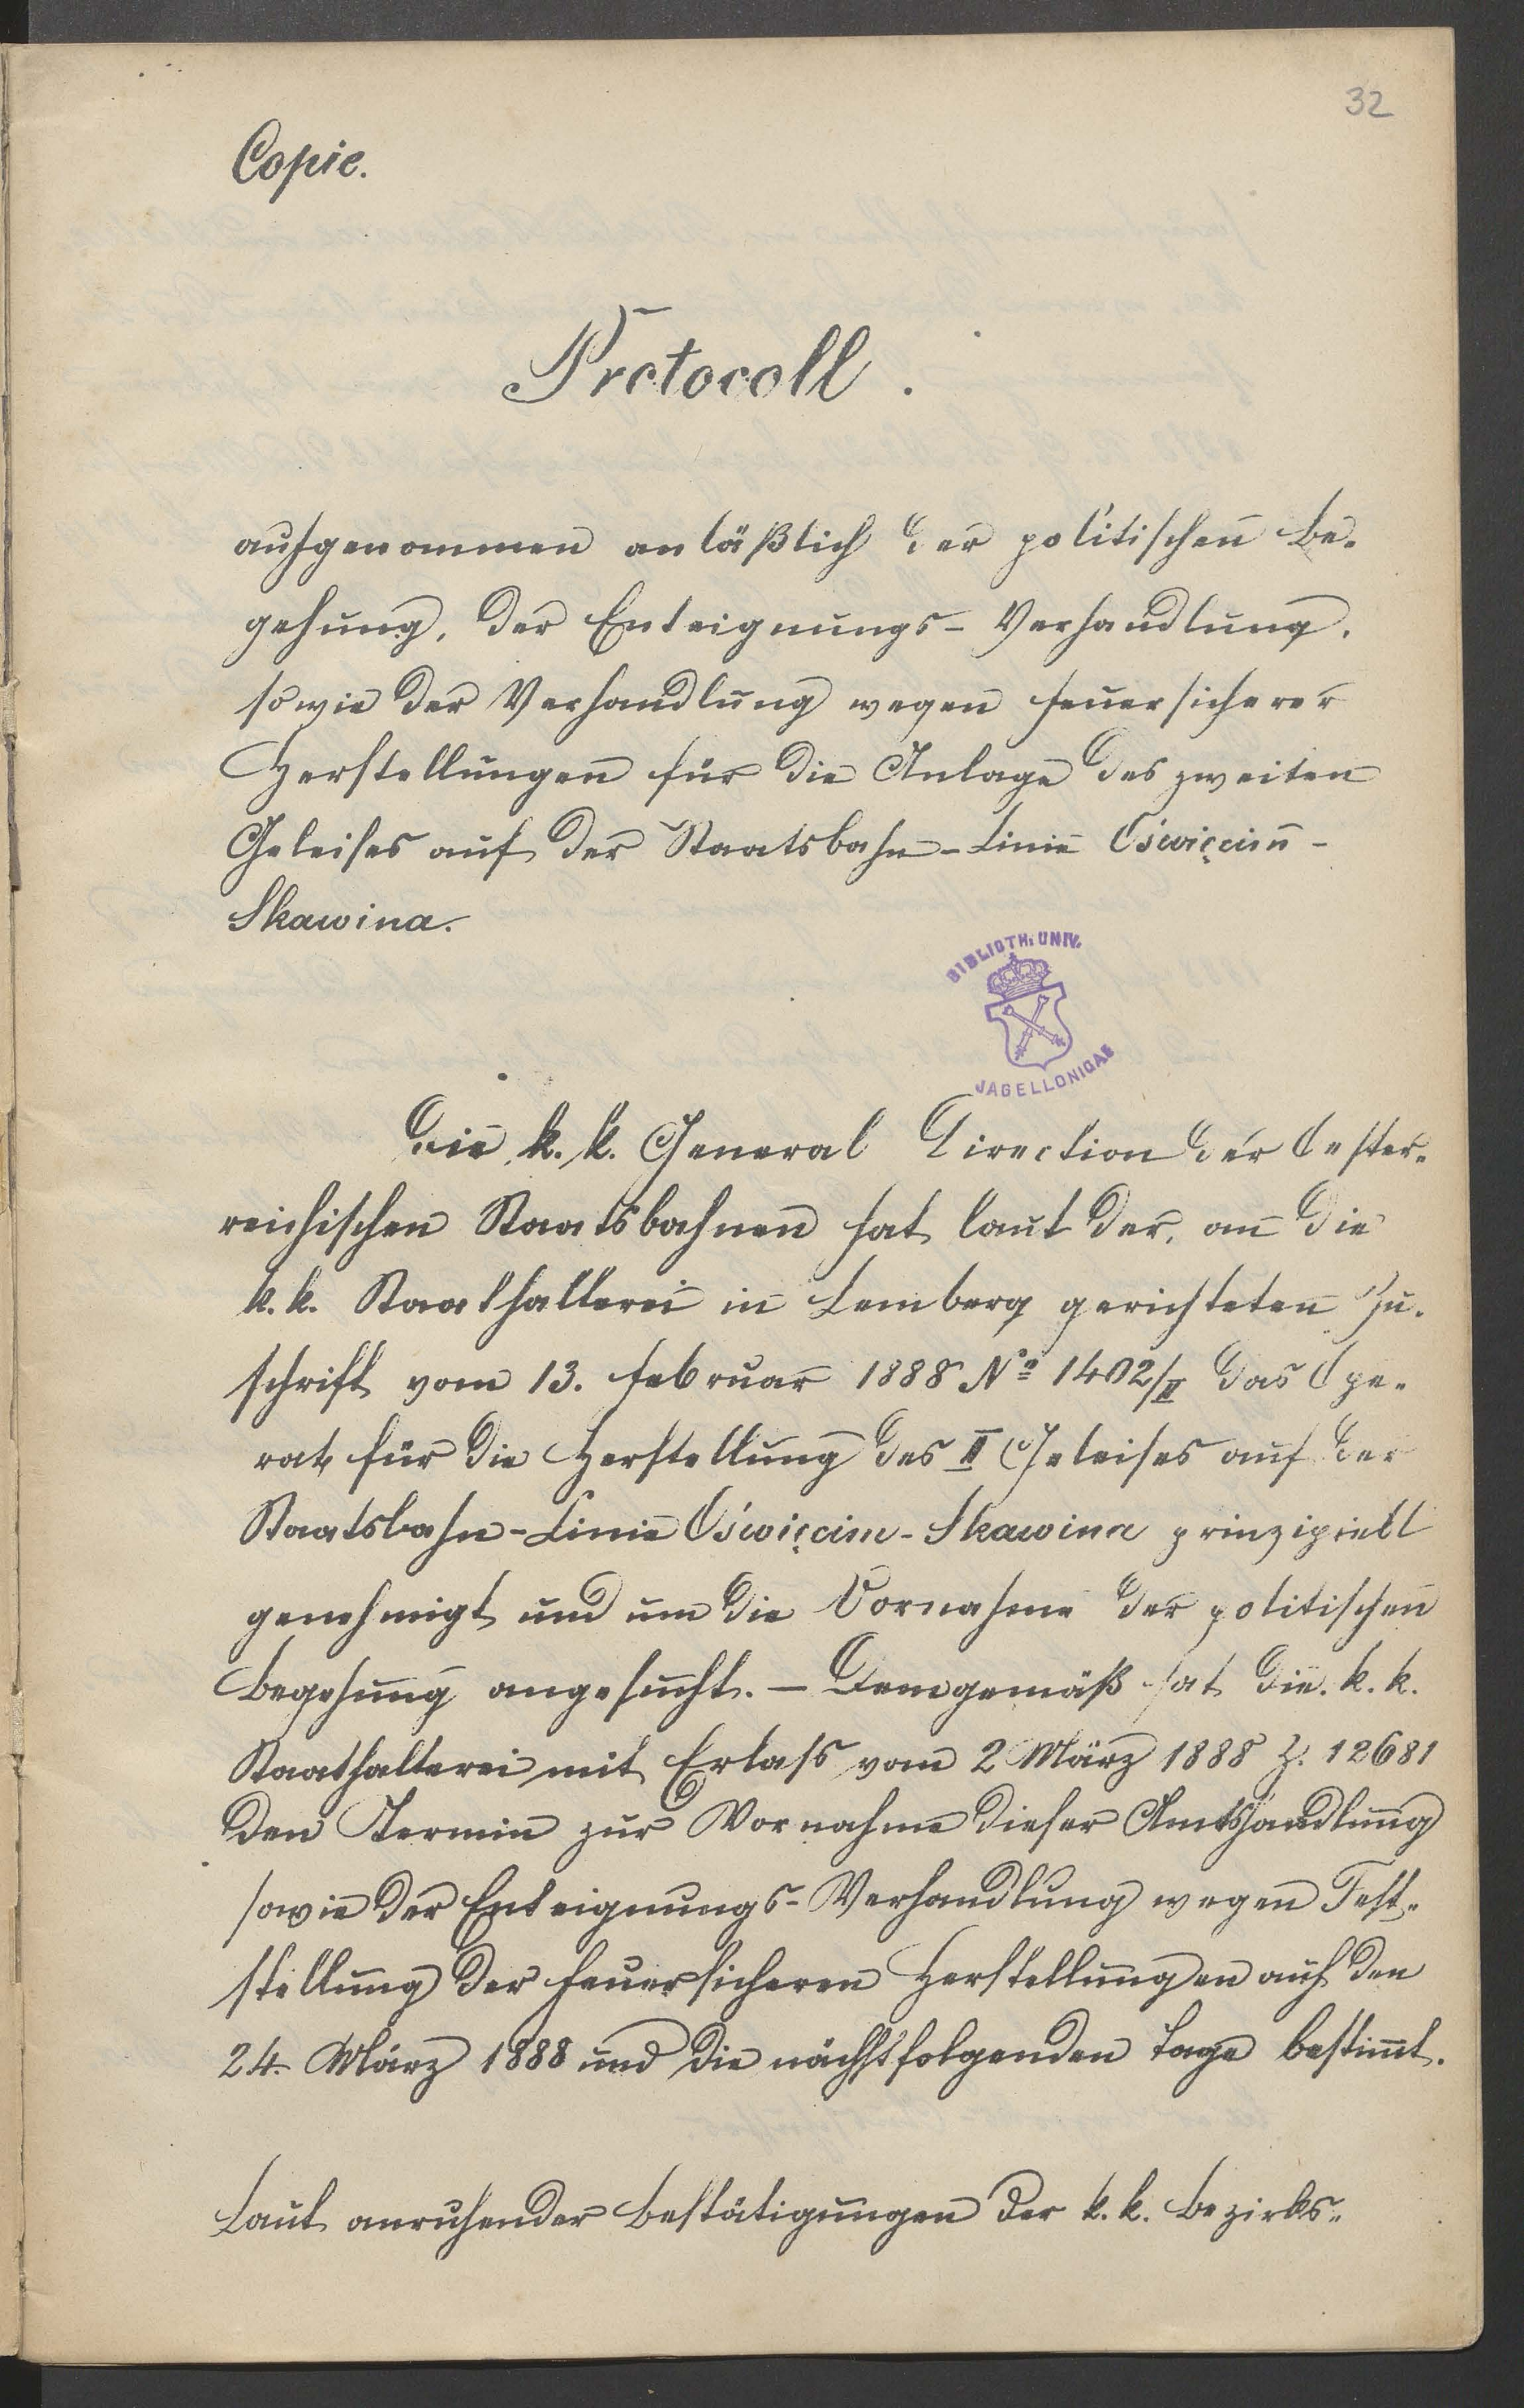 32
Copie.
Protocoll.
aufgenommen anläßlich der politischen Be-
gehung, der Enteignungs-Verhandlung,
sowie der Verhandlung wegen feuersicherer
Herstellungen für die Anlage des zweiten
Geleises auf der Staatsbahn-Linie Oświęcim-
Skawina.
BIBLIOTH. UNIV.
JAGELLONICAE
Die k. k. General Direction der Oester-
reichischen Staatsbahnen hat laut der, an die
k. k. Staathalterei in Lemberg gerichteten Zu-
schrift vom 13. Februar 1888 No 1402/II das Ope-
rat für die Herstellung des II Geleises auf der
Staatsbahn-Linie Oświęcim-Skawina prinzipiell
genehmigt und um die Vornahme der politischen
Begehung angesucht. – Demgemäß hat die k. k.
Staathalterei mit Erlass vom 2 März 1888 Z. 12681
den Termin zur Vornahme dieser Amtshandlung
sowie der Enteignungs-Verhandlung wegen Fest-
stellung der feuersicheren Herstellungen auf den
24. März 1888 und die nächstfolgenden Tage bestimmt.
Laut anruhender Bestätigungen der k. k. Bezirks-